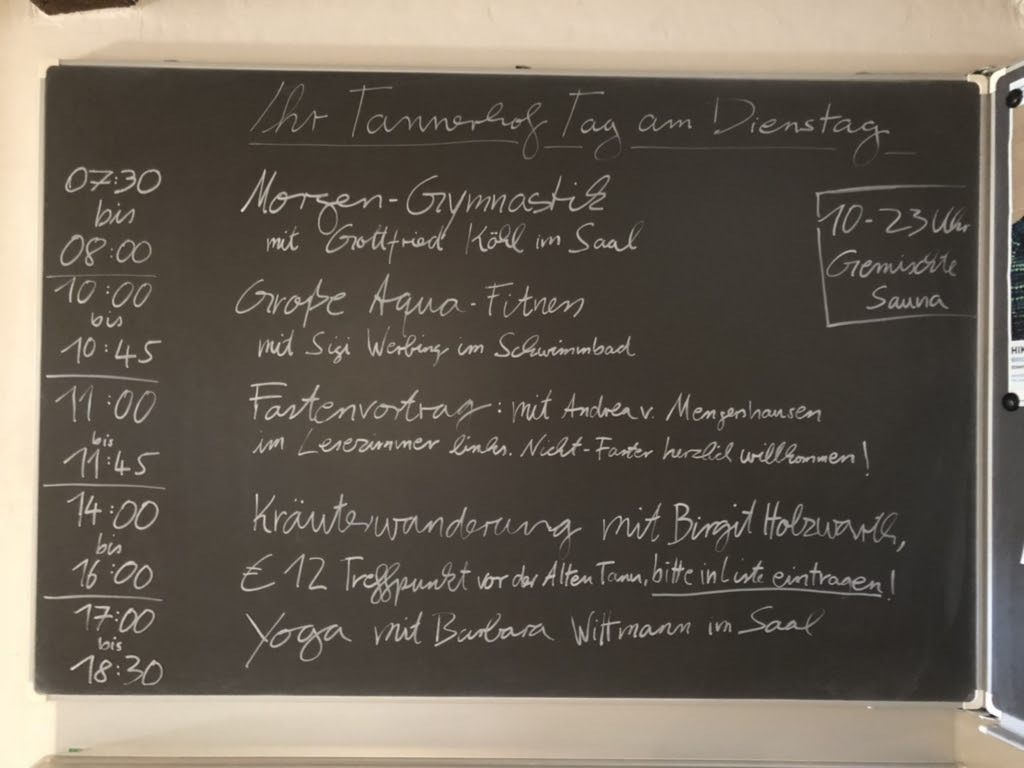 Ihr Tannerhof Tag am Dienstag
07:30
bis
08:00
Morgen-Gymnastik
mit Gottfried Köhl im Saal
10-23 Uhr
Gemischte
Sauna
10:00
bis
10:45
Große Aqua-Fitness
mit Sigi Werbing im Schwimmbad
11:00
bis
11:45
Fastenvortrag: mit Andrea v. Mengenhausen
im Lesezimmer links. Nicht-Faster herzlich willkommen!
14:00
bis
16:00
Kräuterwanderung mit Birgit Holzwarth,
€ 12 Treffpunkt vor der Alten Tann, bitte in Liste eintragen!
17:00
bis
18:30
Yoga mit Barbara Wittmann im Saal